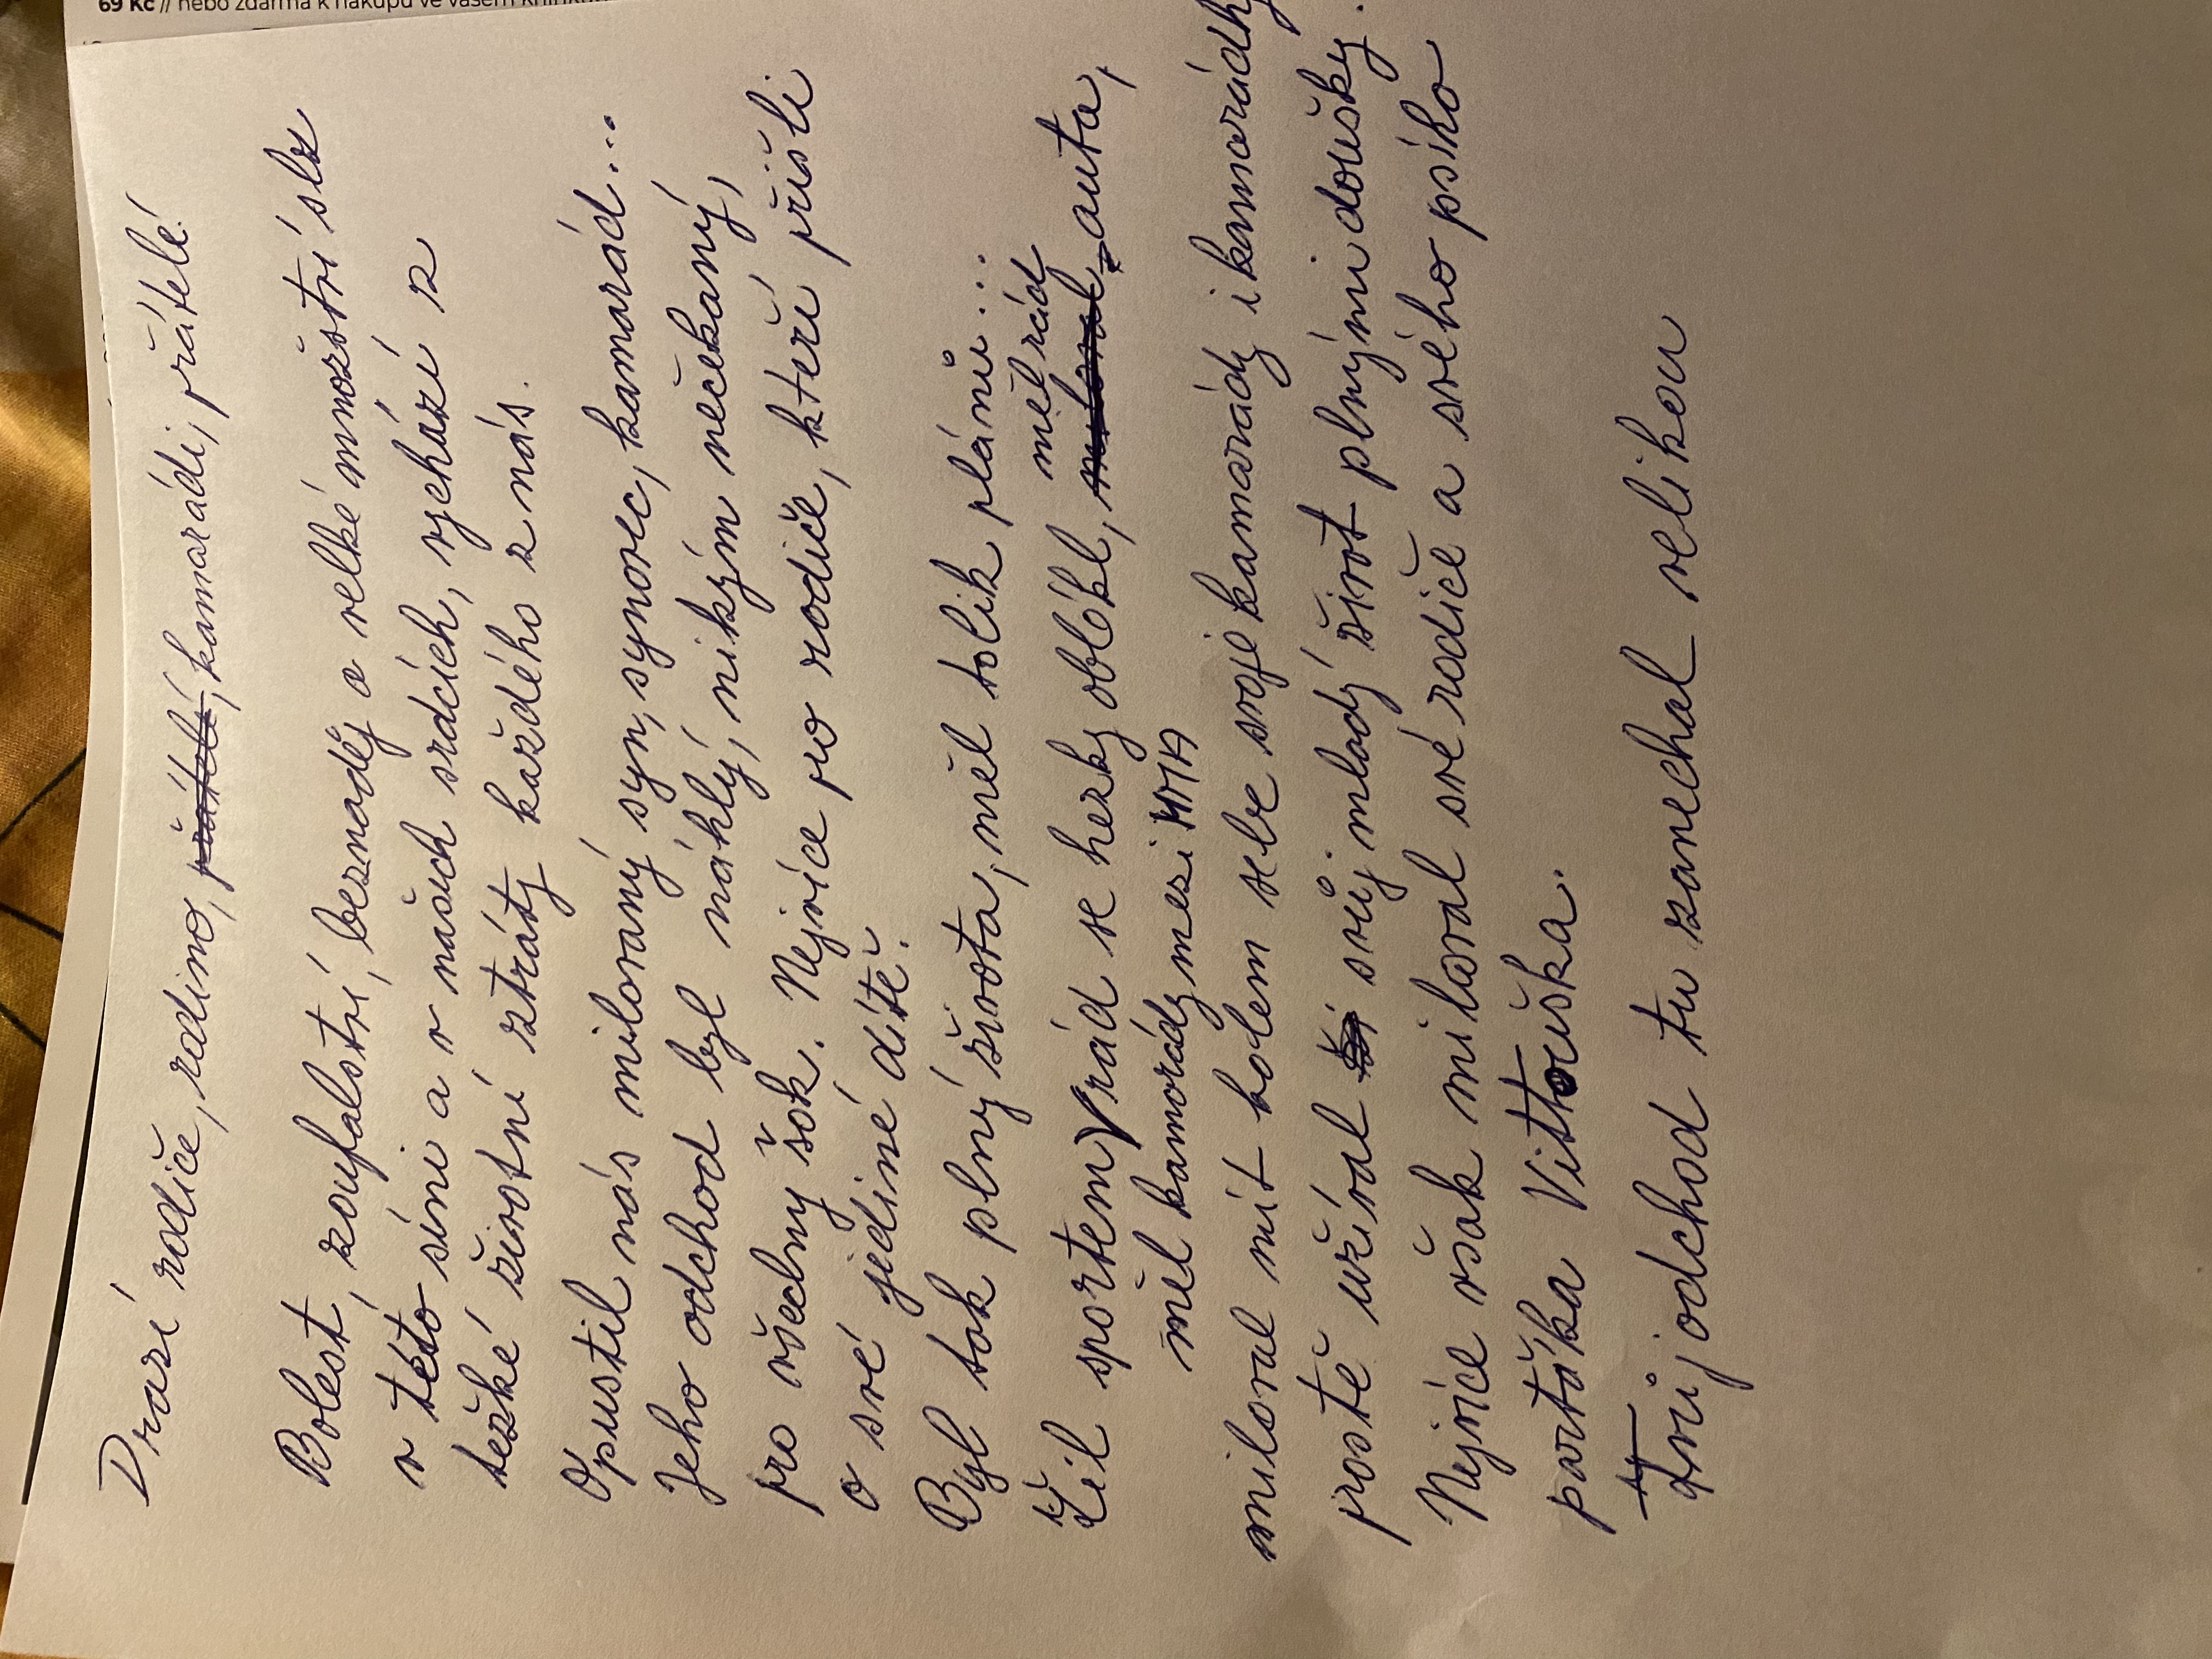 Drazí rodiče, rodino, přátelé, kamarádi, přátelé!
Bolest, zoufalství, beznaděj a velké množství slz
v této síni a v našich srdcích, vychází z
težké životní ztráty každého z nás.
Opustil nás milovaný syn, synovec, kamarád...
Jeho odchod byl náhlý, nikým nečekaný,
pro všechny šok. Nejvíce pro rodiče, kteří přišli
o své jediné dítě.
Byl tak plný života, měl tolik plánů...
měl rád
Žil sportem, rád se hezky oblékl, miloval auta,
měl kamarády mezi MMA
miloval mít kolem sebe svoje kamarády i kamarádky
prostě užíval ži svůj mladý život plnými doušky.
Nejvíce však miloval své rodiče a svého psího
parťáka Vittouška.
Tvůj odchod tu zanechal velikou
69 Kč // nebo zdarma k nákupu ve vašem